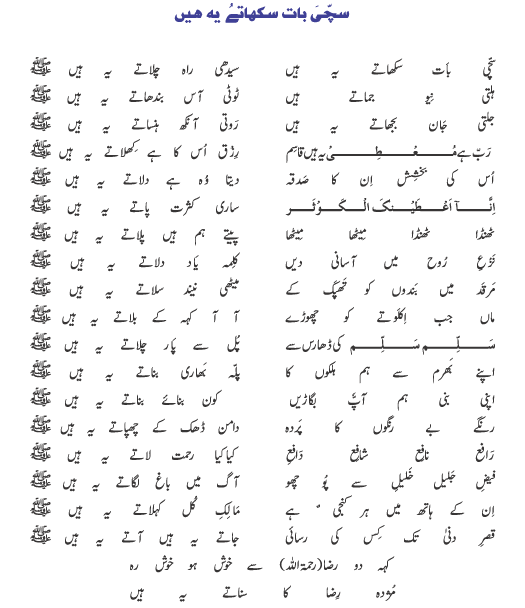 سچّی بات سکھاتے یہ ہیں
سچّی بات سکھاتے یہ ہیں سیدھی راہ چلاتے یہ ہیں ﷺ
ہلتی نیو جماتے ہیں ٹوٹی آس بندھاتے یہ ہیں ﷺ
جلتی جان بجھاتے یہ ہیں روتی آنکھ ہنساتے یہ ہیں ﷺ
رَبّ ہے مُعْطِی یہ ہیں قاسِم رِزْق اُس کا ہے کِھلاتے یہ ہیں ﷺ
اُس کی بخشِش اِن کا صدقہ دیتا وُہ ہے دلاتے یہ ہیں ﷺ
اِنَّـآ اَعْطَیْنٰکَ الْکَوْثَر ساری کثرت پاتے یہ ہیں ﷺ
ٹھنڈا ٹھنڈا مِیٹھا مِیٹھا پیتے ہم ہیں پلاتے یہ ہیں ﷺ
نَزْعِ رُوح میں آسانی دیں کلِمہ یاد دلاتے یہ ہیں ﷺ
مَرقَد میں بَندوں کو تَھپَک کے میٹھی نیند سلاتے یہ ہیں ﷺ
ماں جب اِکلَوتے کو چھوڑے آ آ کہہ کے بلاتے یہ ہیں ﷺ
سَلِّم سَلِّم کی ڈھارس سے پُل سے پار چلاتے یہ ہیں ﷺ
اپنے بَھرم سے ہم ہلکوں کا پلّہ بَھاری بناتے یہ ہیں ﷺ
اپنی بنی ہم آپ بگاڑیں کون بنائے بناتے یہ ہیں ﷺ
رنگے بے رنگوں کا پَردہ دامن ڈھک کے چھپاتے یہ ہیں ﷺ
رَافِع نافِع شافِع دَافِع کیا کیا رحمت لاتے یہ ہیں ﷺ
فیضِ جَلیل خَلیل سے پُوچھو آگ میں باغ لگاتے یہ ہیں ﷺ
اِن کے ہاتھ میں ہر کنجی ہے مَالِکِ کُل کہلاتے یہ ہیں ﷺ
قصرِ دنیٰ تک کِس کی رسائی جاتے یہ ہیں آتے یہ ہیں ﷺ
کہہ دو رضا(رحمۃ اللہ) سے خُوش ہو خُوش رہ
مُژدہ رِضا کا سناتے یہ ہیں